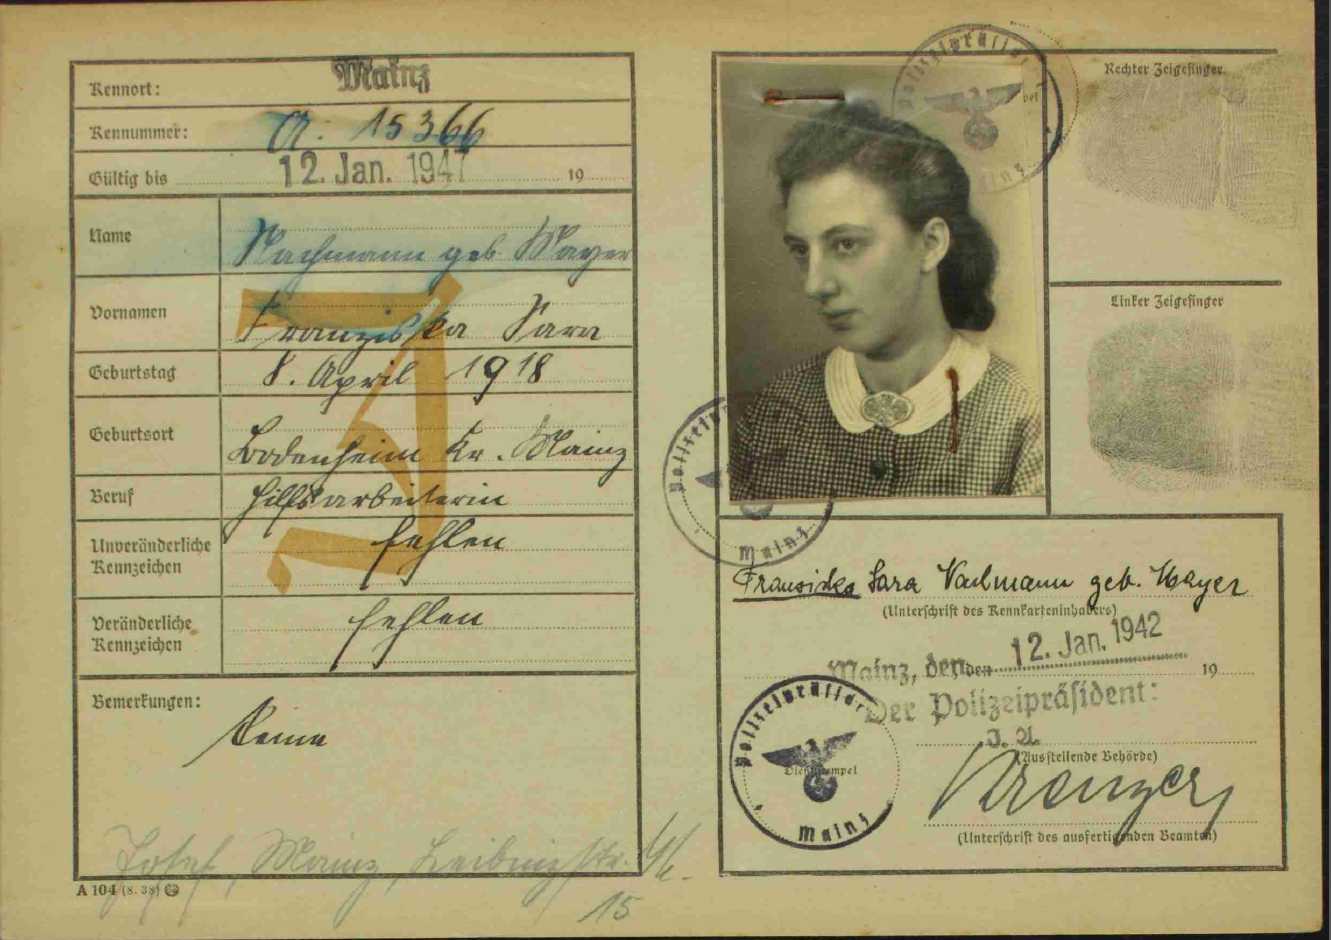 Kennort: Mainz
Kennummer: A. 15366
Gültig bis 12. Jan. 1947 19
Name Nachmann geb. Mayer
Vornamen Franziska Sara
Geburtstag 8. April 1918
Geburtsort Bodenheim Kr. Mainz
Beruf Hilfsarbeiterin
Unveränderliche Kennzeichen fehlen
Veränderliche Kennzeichen fehlen
Bemerkungen: Keine
Josef, Mainz, Leibnizstr.
15
A 104 (8. 38)
J
Polizeipräsident
Mainz
Rechter Zeigefinger
Linker Zeigefinger
Mainz
Franziska Sara Nachmann geb. Mayer
(Unterschrift des Kennkarteninhabers)
Mainz, den den 12. Jan. 1942 19
Der Polizeipräsident:
J. A.
(Ausstellende Behörde)
Polizeipräsident
Dienststempel
Mainz
(Unterschrift des ausfertigenden Beamten)